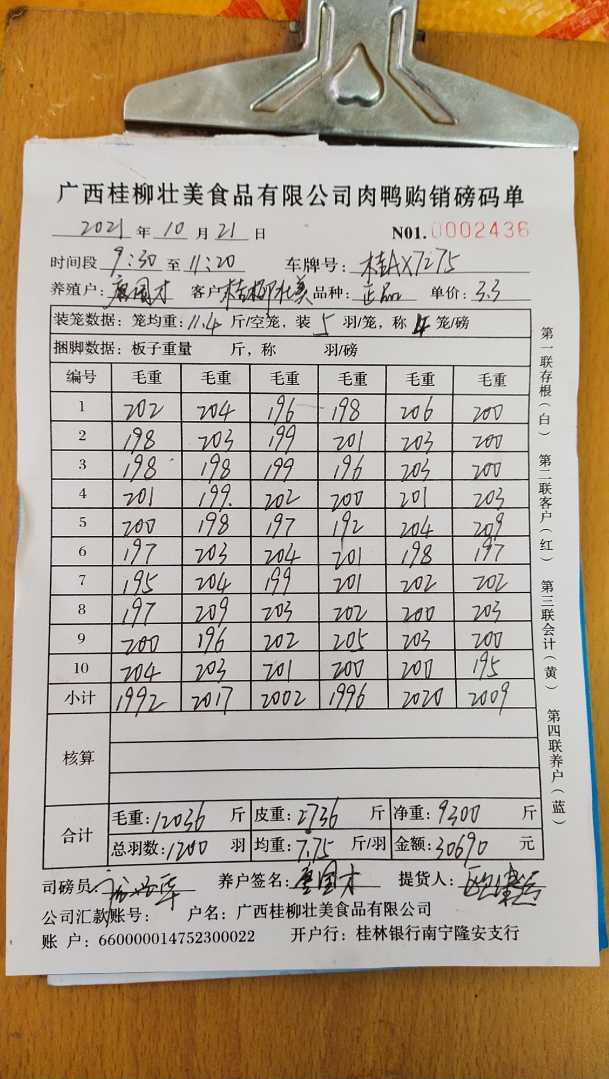 广西桂柳壮美食品有限公司肉鸭购销磅码单
2021 年 10 月 21 日 N01.0002436
时间段 9:30 至 11:20 车牌号: 桂AX7275
养殖户: 国才 客户 桂柳壮美 品种: 正品 单价: 3.3
装笼数据: 笼均重: 11.4 斤/空笼, 装 5 羽/笼, 称 4 笼/磅
捆脚数据: 板子重量 斤, 称 羽/磅
编号 毛重 毛重 毛重 毛重 毛重 毛重
1 202 204 196 198 206 200
2 198 203 199 201 203 200
3 198 198 199 196 203 200
4 201 199 202 200 201 203
5 200 198 197 192 204 209
6 197 203 204 201 198 197
7 195 204 199 201 202 202
8 197 209 203 202 200 203
9 200 196 202 205 203 200
10 204 203 201 200 200 195
小计 1992 2017 2002 1996 2020 2009
核算
合计 毛重: 12036 斤 皮重: 2736 斤 净重: 9300 斤
总羽数: 1200 羽 均重: 7.75 斤/羽 金额: 30690 元
司磅员: 养户签名: 国才 提货人:
公司汇款账号: 户名: 广西桂柳壮美食品有限公司
账 户: 660000014752300022 开户行: 桂林银行南宁隆安支行
第一联存根(白) 第二联客户(红) 第三联会计(黄) 第四联养户(蓝)